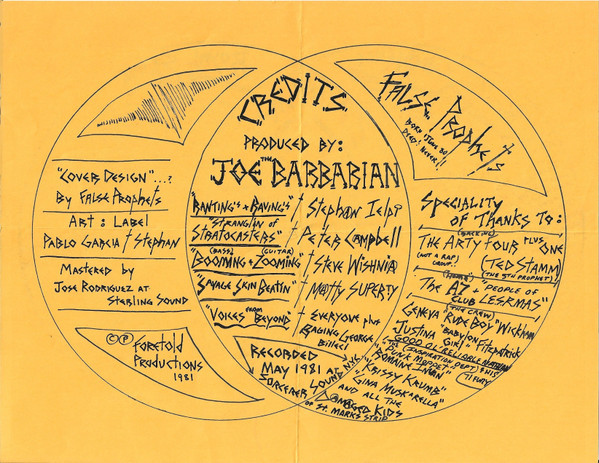 "COVER DESIGN"...?
By FALSE PROPHETS
ART : LABEL
PABLO GARCIA / STEPHAN
MASTERED by
JOSE RODRIGUEZ AT
STERLING SOUND
© ℗ FORETOLD
PRODUCTIONS
1981
CREDITS
PRODUCED BY:
JOE THE BARBARIAN
"RANTING'S + RAVING'S" / STEPHAN IELPI
"STRANGLIN of STRATOCASTERS" / PETER CAMPBELL
(BASS) (GUITAR)
"BOOMING + ZOOMING" / STEVE WISHNIA
"SAVAGE SKIN BEATIN" / MATTY SUPERTY
"VOICES FROM BEYOND" / EVERYONE plus
RAGING GEORGE
BILLECI
RECORDED
MAY 1981 AT
SORCERER SOUND NYC
FALSE PROPHETS
BORN JUNE 80
DIED: NEVER!!
SPECIALITY
OF THANKS TO:
(BACKING)
THE ARTY FOUR PLUS ONE
(NOT A RAP GROUP)
(TED STAMM)
(THE 5TH PROPHET)
The A7 + "PEOPLE OF
CLUB LESRMAS"
(THE CREW)
GENEVA "RUDE BOY" WICKMAN
JUSTINA "BABYLON GIRL" FITZPATRICK
GOOD OL' RELIABLE NATHAN
(THE INSPIRATION DEPT)
"PUNK MOPPET"
"KRISSY KRUMB"
"GINA MUSKARELLA"
AND ALL THE
DAMAGED KIDS
OF ST. MARKS STRIP